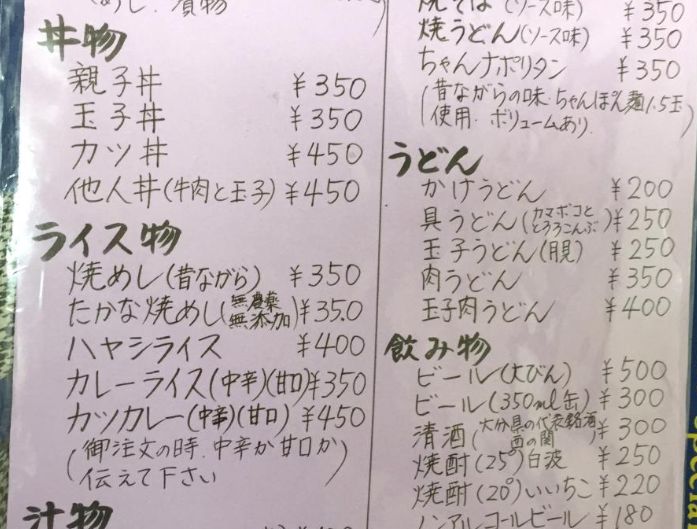 めし、漬物
丼物
親子丼 ¥350
玉子丼 ¥350
カツ丼 ¥450
他人丼(牛肉と玉子) ¥450
ライス物
焼めし(昔ながら) ¥350
たかな焼めし(無農薬 無添加) ¥350
ハヤシライス ¥400
カレーライス(中辛)(甘口) ¥350
カツカレー(中辛)(甘口) ¥450
(御注文の時、中辛か甘口か
伝えて下さい
汁物
焼そば(ソース味) ¥350
焼うどん(ソース味) ¥350
ちゃんナポリタン ¥350
(昔ながらの味、ちゃんぽん麺1.5玉
使用、ボリュームあり、
うどん
かけうどん ¥200
具うどん(カマボコと とろろこんぶ) ¥250
玉子うどん(月見) ¥250
肉うどん ¥350
玉子肉うどん ¥400
飲み物
ビール(大びん) ¥500
ビール(350ml缶) ¥300
清酒(大分県の代表銘酒 西の関) ¥300
焼酎(25°)白波 ¥250
焼酎(20°)いいちこ ¥220
ノンアルコールビール ¥180